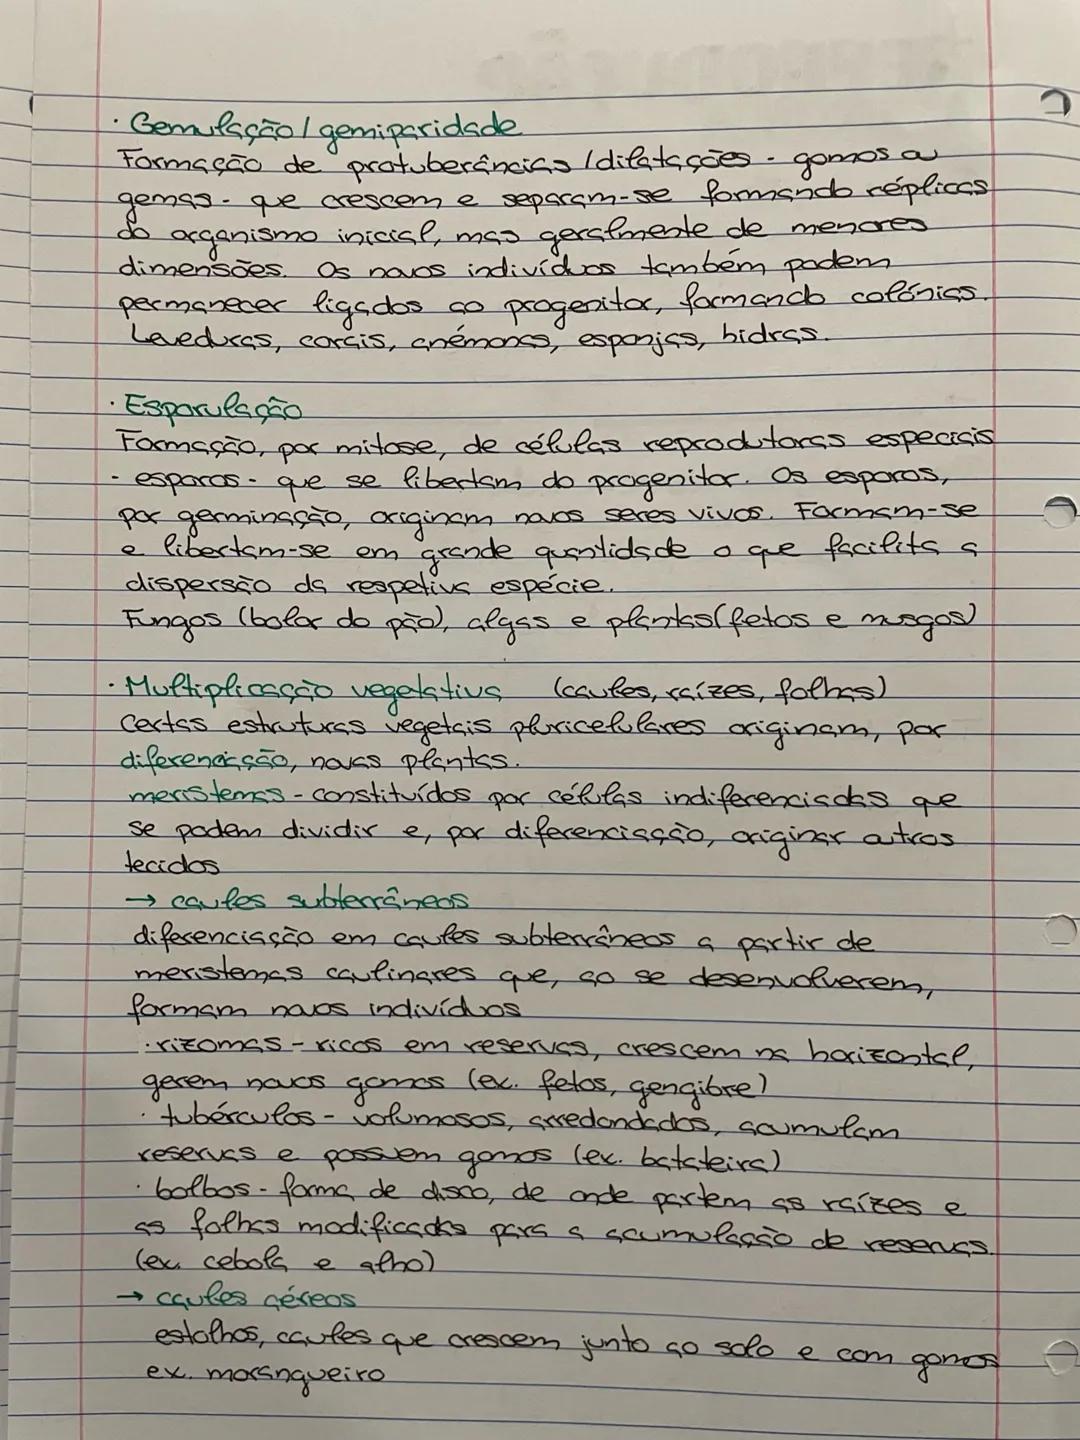 · Gemulação / gemiparidade
Formação de protuberâncias / dilatações - gomos ou
gemas - que crescem e separam-se formando réplicas
do organismo inicial, mas geralmente de menores
dimensões. Os novos indivíduos também podem
permanecer ligados ao progenitor, formando colónias.
Leveduras, corais, anémonas, esponjas, hidras.
· Esporulação
Formação, por mitose, de células reprodutoras especiais
- esporos - que se libertam do progenitor. Os esporos,
por germinação, originam novos seres vivos. Formam-se
e libertam-se em grande quantidade o que facilita a
dispersão da respetiva espécie.
Fungos (bolor do pão), algas e plantas (fetos e musgos)
· Multiplicação vegetativa (caules, raízes, folhas)
Certas estruturas vegetais pluricelulares originam, por
diferenciação, novas plantas.
meristemas - constituídos por células indiferenciadas que
se podem dividir e, por diferenciação, originar outros
tecidos
→ caules subterrâneos
diferenciação em caules subterrâneos a partir de
meristemas caulinares que, ao se desenvolverem,
formam novos indivíduos
· rizomas - ricos em reservas, crescem na horizontal,
gerem novos gomos (ex. fetos, gengibre)
· tubérculos - volumosos, arredondados, acumulam
reservas e possuem gomos (ex. batateira)
· bolbos - forma de disco, de onde partem as raízes e
as folhas modificadas para a acumulação de reservas.
(ex. cebola e alho)
→ caules aéreos
estolhos, caules que crescem junto ao solo e com gomos
ex. morangueiro